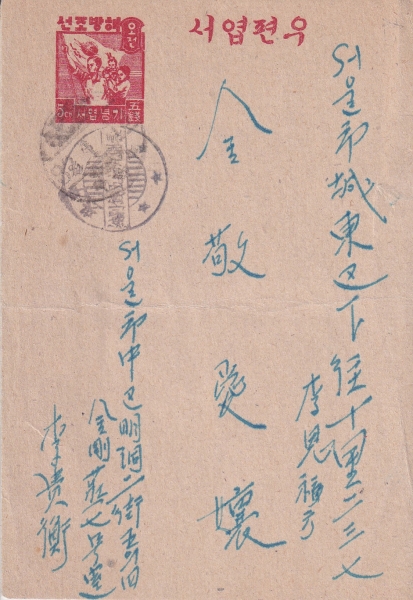 해방조선
오전
우편엽서
서울市城東区下往十里二三七
李恩福方
金敬愛孃
서울市中区明洞二街
金剛莊七号室
李貴衡